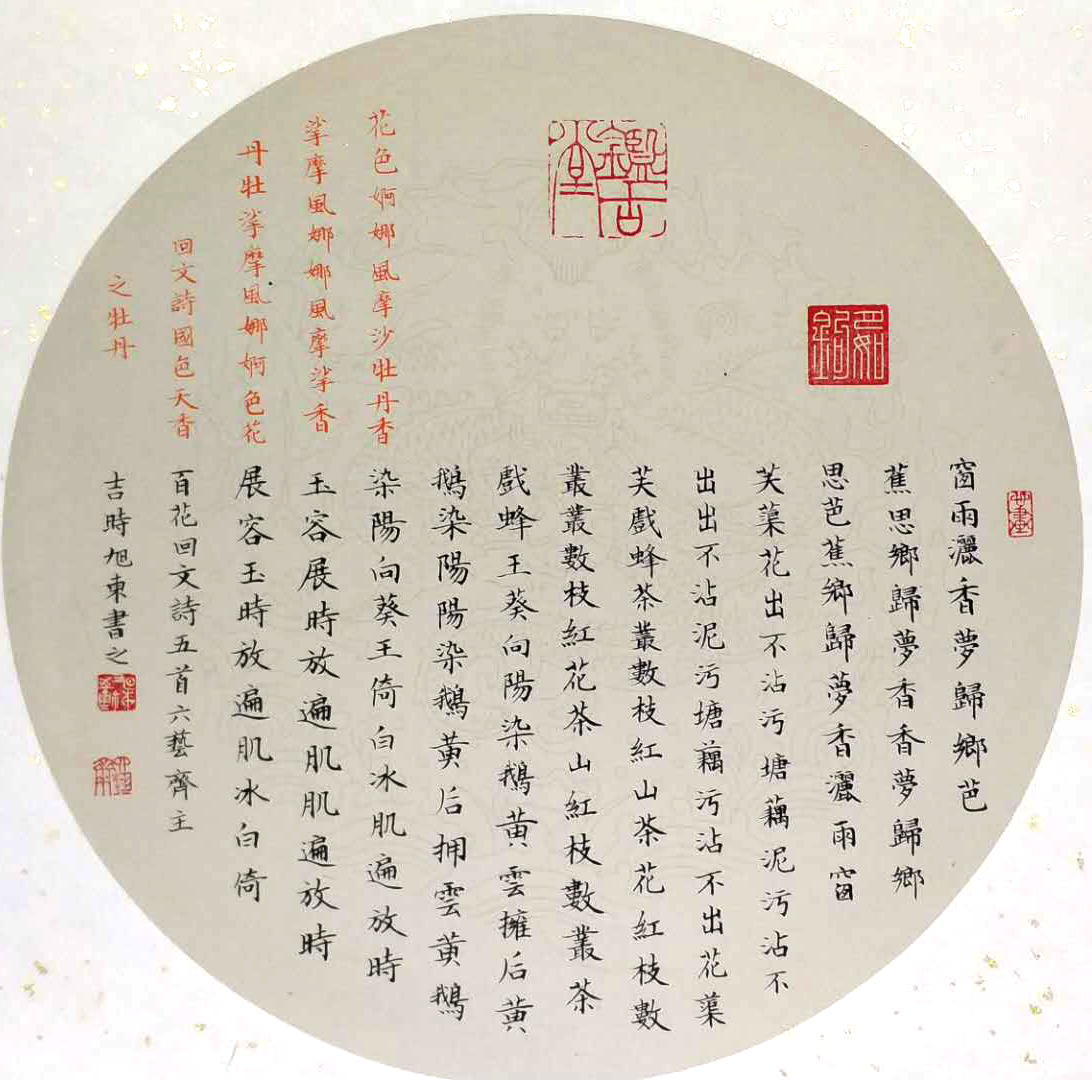 鑑古堂
窗雨灑香夢歸鄉芭
蕉思鄉歸夢香香夢歸鄉
思芭蕉鄉歸夢香灑雨窗
芙蕖花出不沾污塘藕泥污沾不
出出不沾泥污塘藕污沾不出花蕖
芙戲蜂茶叢數枝紅山茶花紅枝數
叢叢數枝紅花茶山紅枝數叢茶
戲蜂王葵向陽染鵝黃雲擁后黃
鵝染陽陽染鵝黃后拥雲黃鵝
染陽向葵王倚白冰肌遍放時
玉容展時放遍肌肌遍放時
展容玉時放遍肌冰白倚
百花回文詩五首六藝齊主
吉時旭東書之
花色婀娜風摩沙牡丹香
挲摩風娜娜風摩挲香
丹牡挲摩風娜婀色花
回文詩國色天香
之牡丹